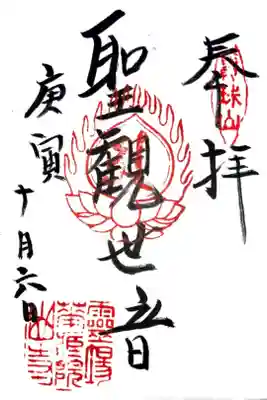 奉拝
聖観世音
庚寅
十月六日